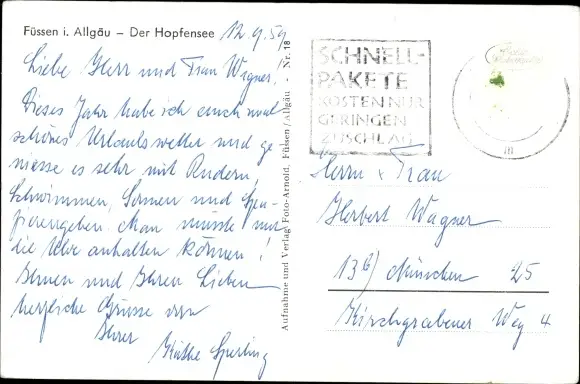 Füssen i. Allgäu – Der Hopfensee 12.9.59
Liebe Herr und Frau Wagner!
Dieses Jahr habe ich auch mal
schönes Urlaubswetter und ge-
niesse es sehr mit Rudern,
Schwimmen, Sonnen und Spa-
zierengehen. Man müsste nur
die Uhr anhalten können!
Ihnen und Ihren Lieben
herzliche Grüsse von
Ihrer
Käthe Sperling
Aufnahme und Verlag: Foto-Arnold, Füssen/Allgäu - Nr. 18
SCHNELL-
PAKETE
KOSTEN NUR
GERINGEN
ZUSCHLAG
m
Herrn & Frau
Herbert Wagner
13b) München 25
Kirchgrabener Weg 4